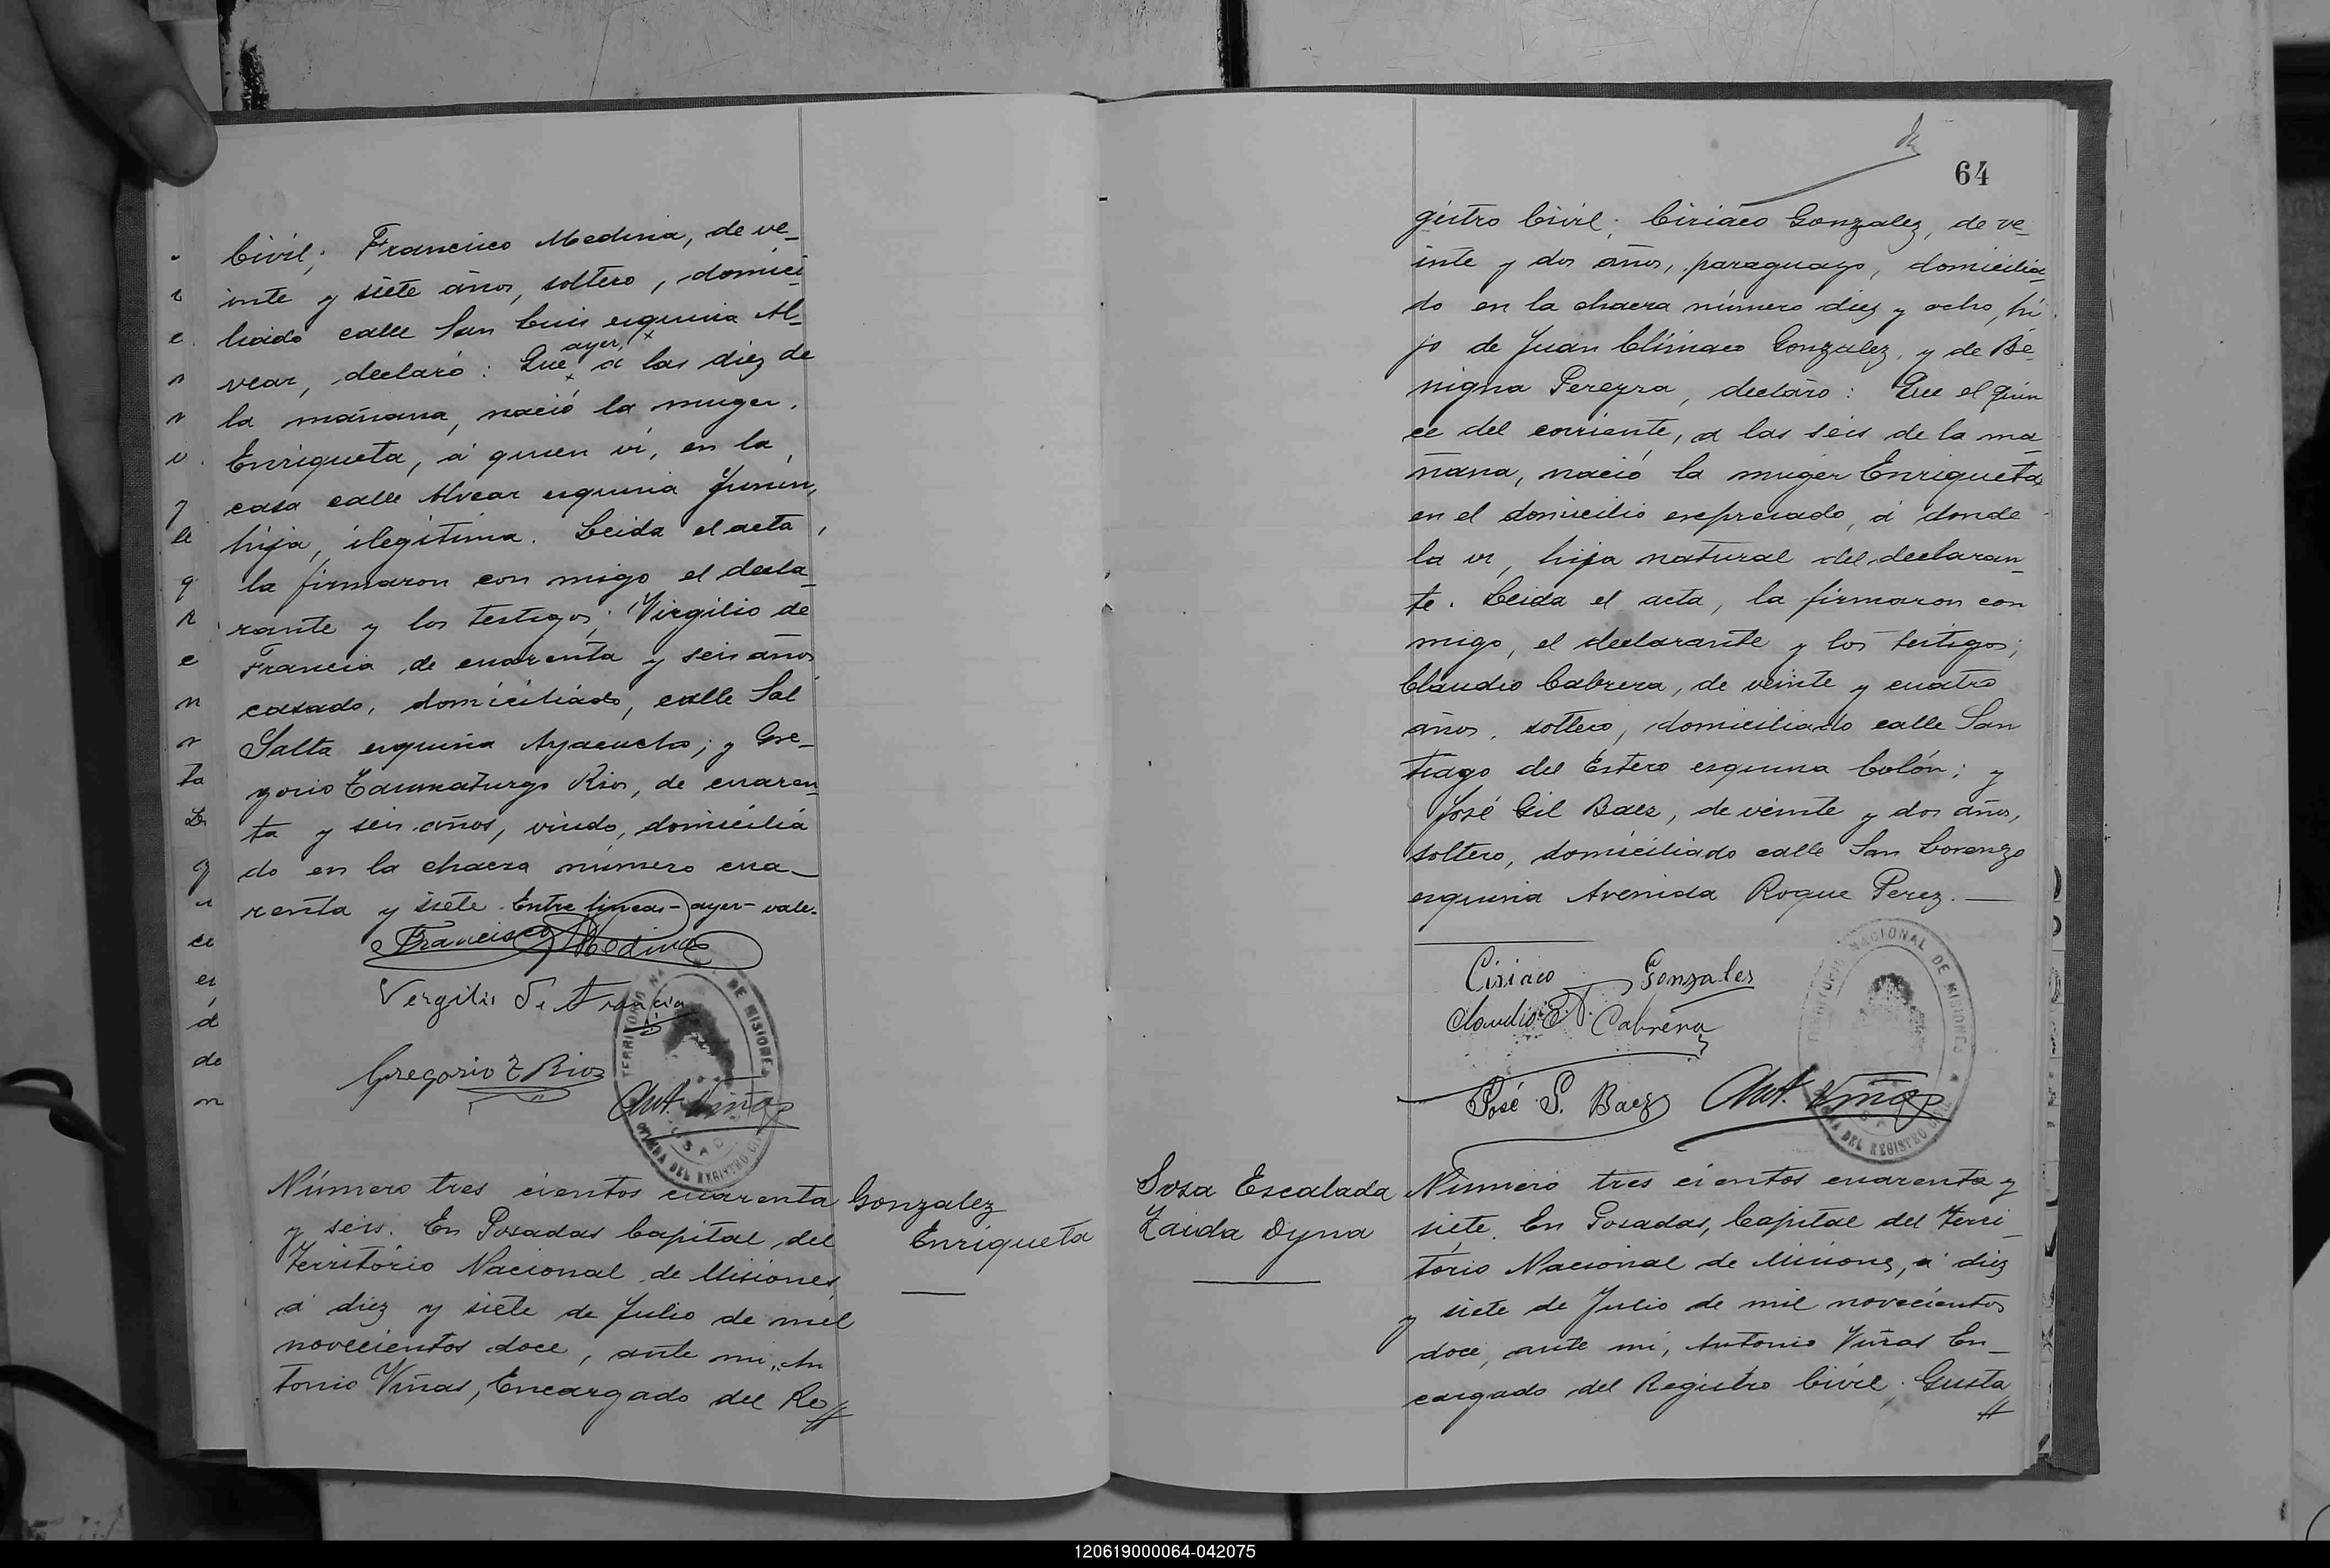 Civil; Francisco Medina, de ve_
inte y siete años, soltero, domici_
liado calle San Luis esquina Al_
vear, declaró: Que ayer, á las diez de
la mañana, nació la muger.
Enriqueta, á quien ví, en la
casa calle Alvear esquina Junin,
hija, ilegitima. Leida el acta,
la firmaron con migo el decla_
rante y los testigos; Virgilio de
Francia de cuarenta y seis años
casado, domiciliado, calle Sal
Salta esquina Ayacucho; y Gre_
gorio Taumaturgo Rios, de cuaren_
ta y seis años, viudo, domicilia
do en la chacra número cua_
renta y siete. Entre lineas-ayer-vale.
Francisco Medina
Vergilio De Francia
Gregorio T Rios
Ant. Viñas
TERRITORIO NACIONAL DE MISIONES
POSADAS
OFICINA DEL REGISTRO CIVIL
Número tres cientos cuarenta
y seis. En Posadas Capital del
Territorio Nacional de Misiones,
á diez y siete de Julio de mil
novecientos doce, ante mi, An
tonio Viñas, Encargado del Re
Gonzalez
Enriqueta
64
gistro Civil; Ciriaco Gonzalez, de ve_
inte y dos años, paraguayo, domicilia_
do en la chacra número diez y ocho, hi
jo de Juan Clímaco Gonzalez, y de Be_
nigna Pereyra, declaro: Que el quin
ce del corriente, a las seis de la ma_
ñana, nació la muger Enriqueta
en el domicilio expresado, á donde
la vi, hija natural del declaran_
te. Leida el acta, la firmaron con
migo, el declarante y los testigos;
Claudio Cabrera, de veinte y cuatro
años, soltero, domiciliado calle San
tiago del Estero esquina Colón; y
José Gil Baez, de veinte y dos años,
soltero, domiciliado calle San Lorenzo
esquina Avenida Roque Perez.
Ciriaco Gonzales
Claudio E. Cabrera
José G. Baez
Ant. Viñas
TERRITORIO NACIONAL DE MISIONES
OFICINA DEL REGISTRO CIVIL
Sosa Escalada
Zaida Dyna
Número tres cientos cuarenta y
siete. En Posadas, Capital del Terri_
torio Nacional de Misiones, á diez
y siete de Julio de mil novecientos
doce, ante mi, Antonio Viñas En_
cargado del Registro Civil; Gusta
120619000064-042075